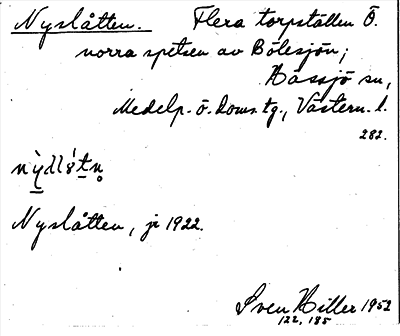 Nyslåtten. Flera torpställen Ö.
norra spetsen av Bölesjön;
Hässjö sn,
Medelp. ö. doms. tg., Västern. l.
282.
Nyslåtten, jr 1922.
Sven Hiller 1952
122, 185